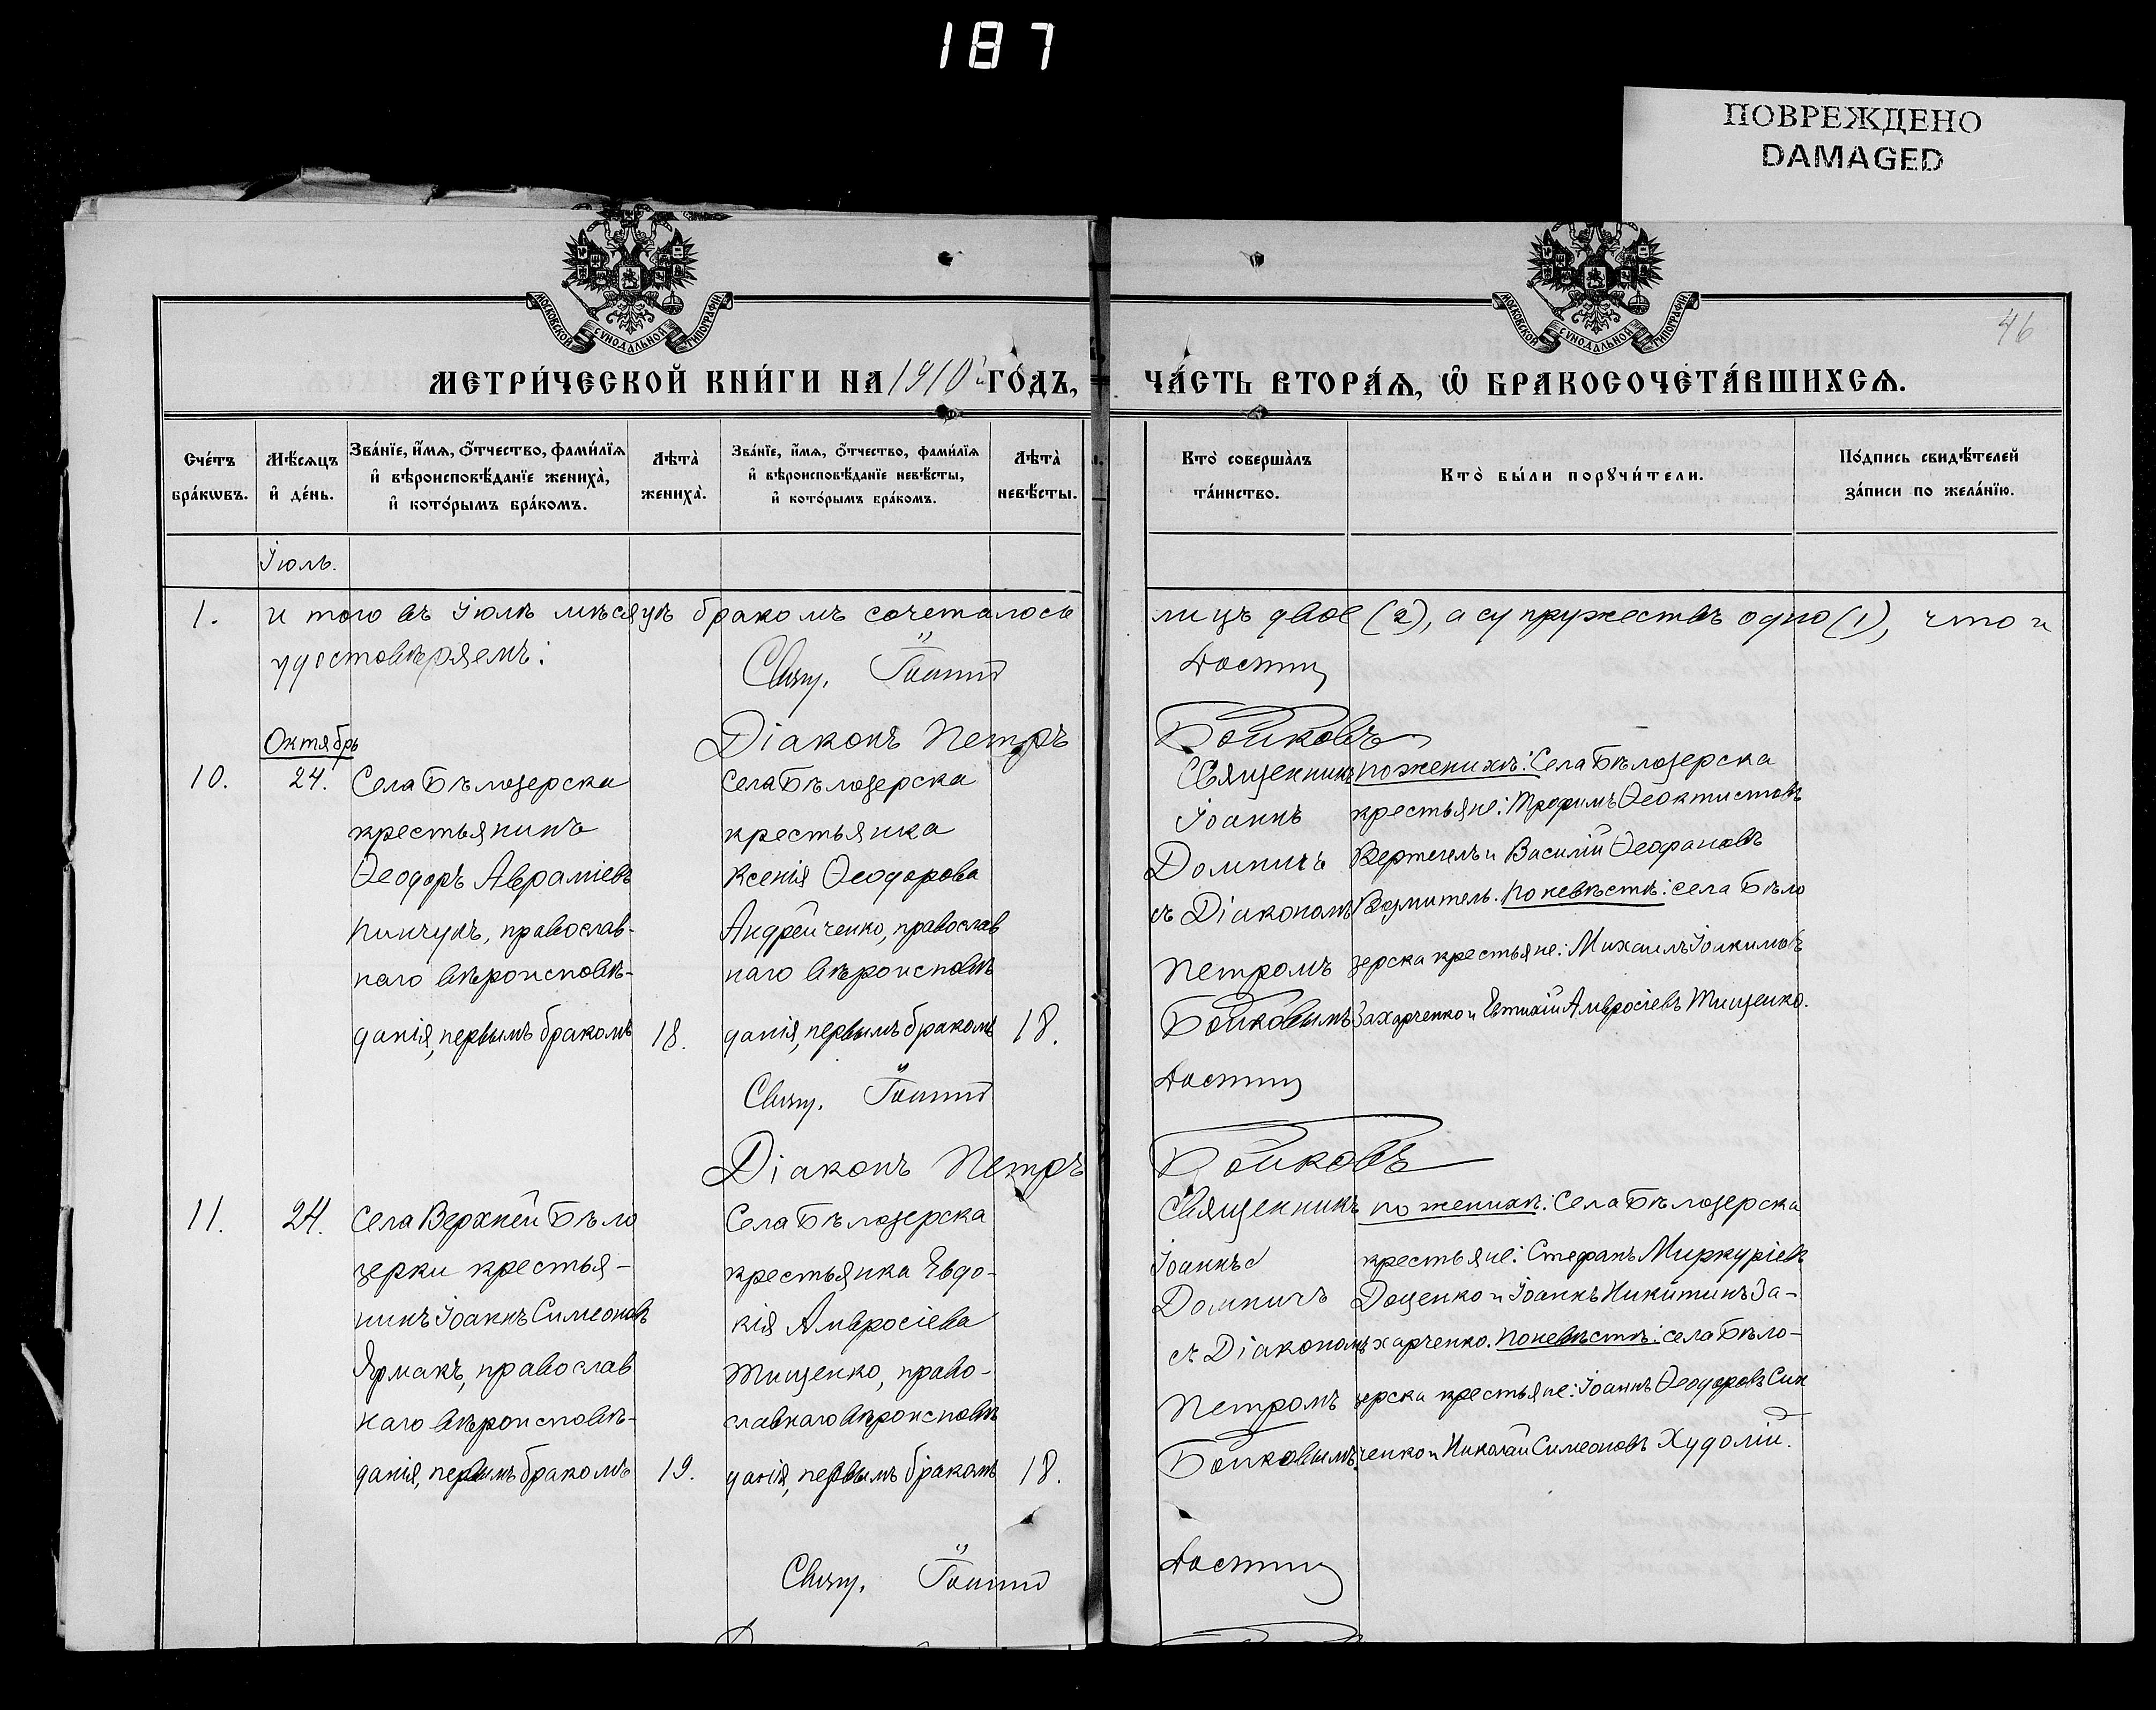 187
ПОВРЕЖДЕНО
DAMAGED
МОСКОВСКОЙ СѴНОДАЛЬНОЙ ТИПОГРАФІИ
МОСКОВСКОЙ СѴНОДАЛЬНОЙ ТИПОГРАФІИ
46
МЕТРИ́ЧЕСКОЙ КНИ́ГИ НА 1910й ГО́ДЪ,
ЧА́СТЬ ВТОРА́Ѧ, Ѿ БРАКОСОЧЕТА́ВШИХСѦ.
Сче́тъ бра́кѡвъ.
Мѣ́сѧцъ и҆ де́нь.
Зва́нїе, и҆́мѧ, ѻ҆́тчество, фами́лїѧ
и҆ вѣроисповѣ́данїе жениха̀,
и҆ кото́рымъ бра́комъ.
Лѣта̀ жениха̀.
Зва́нїе, и҆́мѧ, ѻ҆́тчество, фами́лїѧ
и҆ вѣроисповѣ́данїе невѣ́сты,
и҆ кото́рымъ бра́комъ.
Лѣта̀ невѣ́сты.
Кто̀ соверша́лъ
та́инство.
Кто̀ бы́ли порꙋчи́тели.
По́дпись свидѣ́телей
за́писи по жела́нїю.
Іюль.
1. И того въ Іюлѣ мѣсяцѣ бракомъ сочеталось лицъ двое (2), а супружествъ одно (1), что и
удостовѣряемъ:
Свящ. Іоаннъ
Діаконъ Петръ Бойковъ
Октябрь
10.
24.
Села Бѣлозерска
крестьянинъ
Ѳеодоръ Авраміевъ
Пинчукъ, православ-
наго вѣроисповѣ-
данія, первымъ бракомъ
18.
Села Бѣлозерска
крестьянка
Ксенія Ѳеодорова
Андрейченко, православ
наго вѣроисповѣ
данія, первымъ бракомъ
18.
Священникъ
Іоаннъ
Домничъ
съ Діакономъ
Петромъ
Бойковымъ
По женихѣ: Села Бѣлозерска
крестьяне: Трофимъ Ѳеоктистовъ
и Василій Ѳеофановъ
По невѣстѣ: села Бѣло
зерска крестьяне: Михаилъ Іоакимовъ
Захарченко и Евтихій Амвросіевъ Тищенко.
Свящ. Іоаннъ
Діаконъ Петръ Бойковъ
11.
24.
Села Верхней Бѣло
зерки крестья-
нинъ Іоаннъ Симеоновъ
Ярмакъ, православ
наго вѣроисповѣ-
данія, первымъ бракомъ
19.
Села Бѣлозерска
крестьянка Евдо-
кія Амвросіева
Тищенко, право-
славнаго вѣроисповѣ
данія, первымъ бракомъ
18.
Священникъ
Іоаннъ
Домничъ
съ Діакономъ
Петромъ
Бойковымъ
По женихѣ: Села Бѣлозерска
крестьяне: Стефанъ Меркуріевъ
Доценко и Іоаннъ Никитинъ За-
харченко. По невѣстѣ: села Бѣло-
зерска крестьяне: Іоаннъ Ѳеодоровъ Син
ченко и Николай Симеоновъ Худолій.
Свящ. Іоаннъ